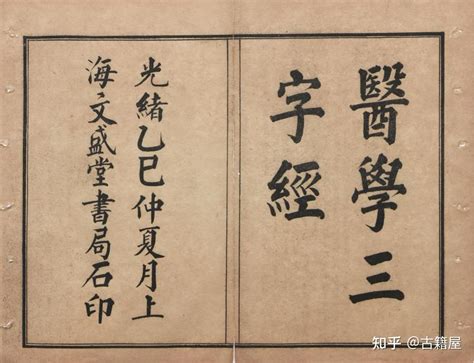 醫學三
字經
光緒乙巳仲夏月上
海文盛堂書局石印
知乎 @古籍屋